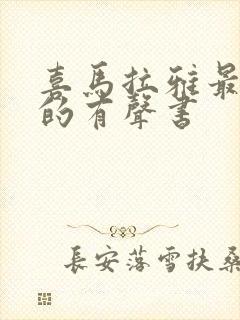 喜馬拉雅最
的有聲書
長安落雪扶桑